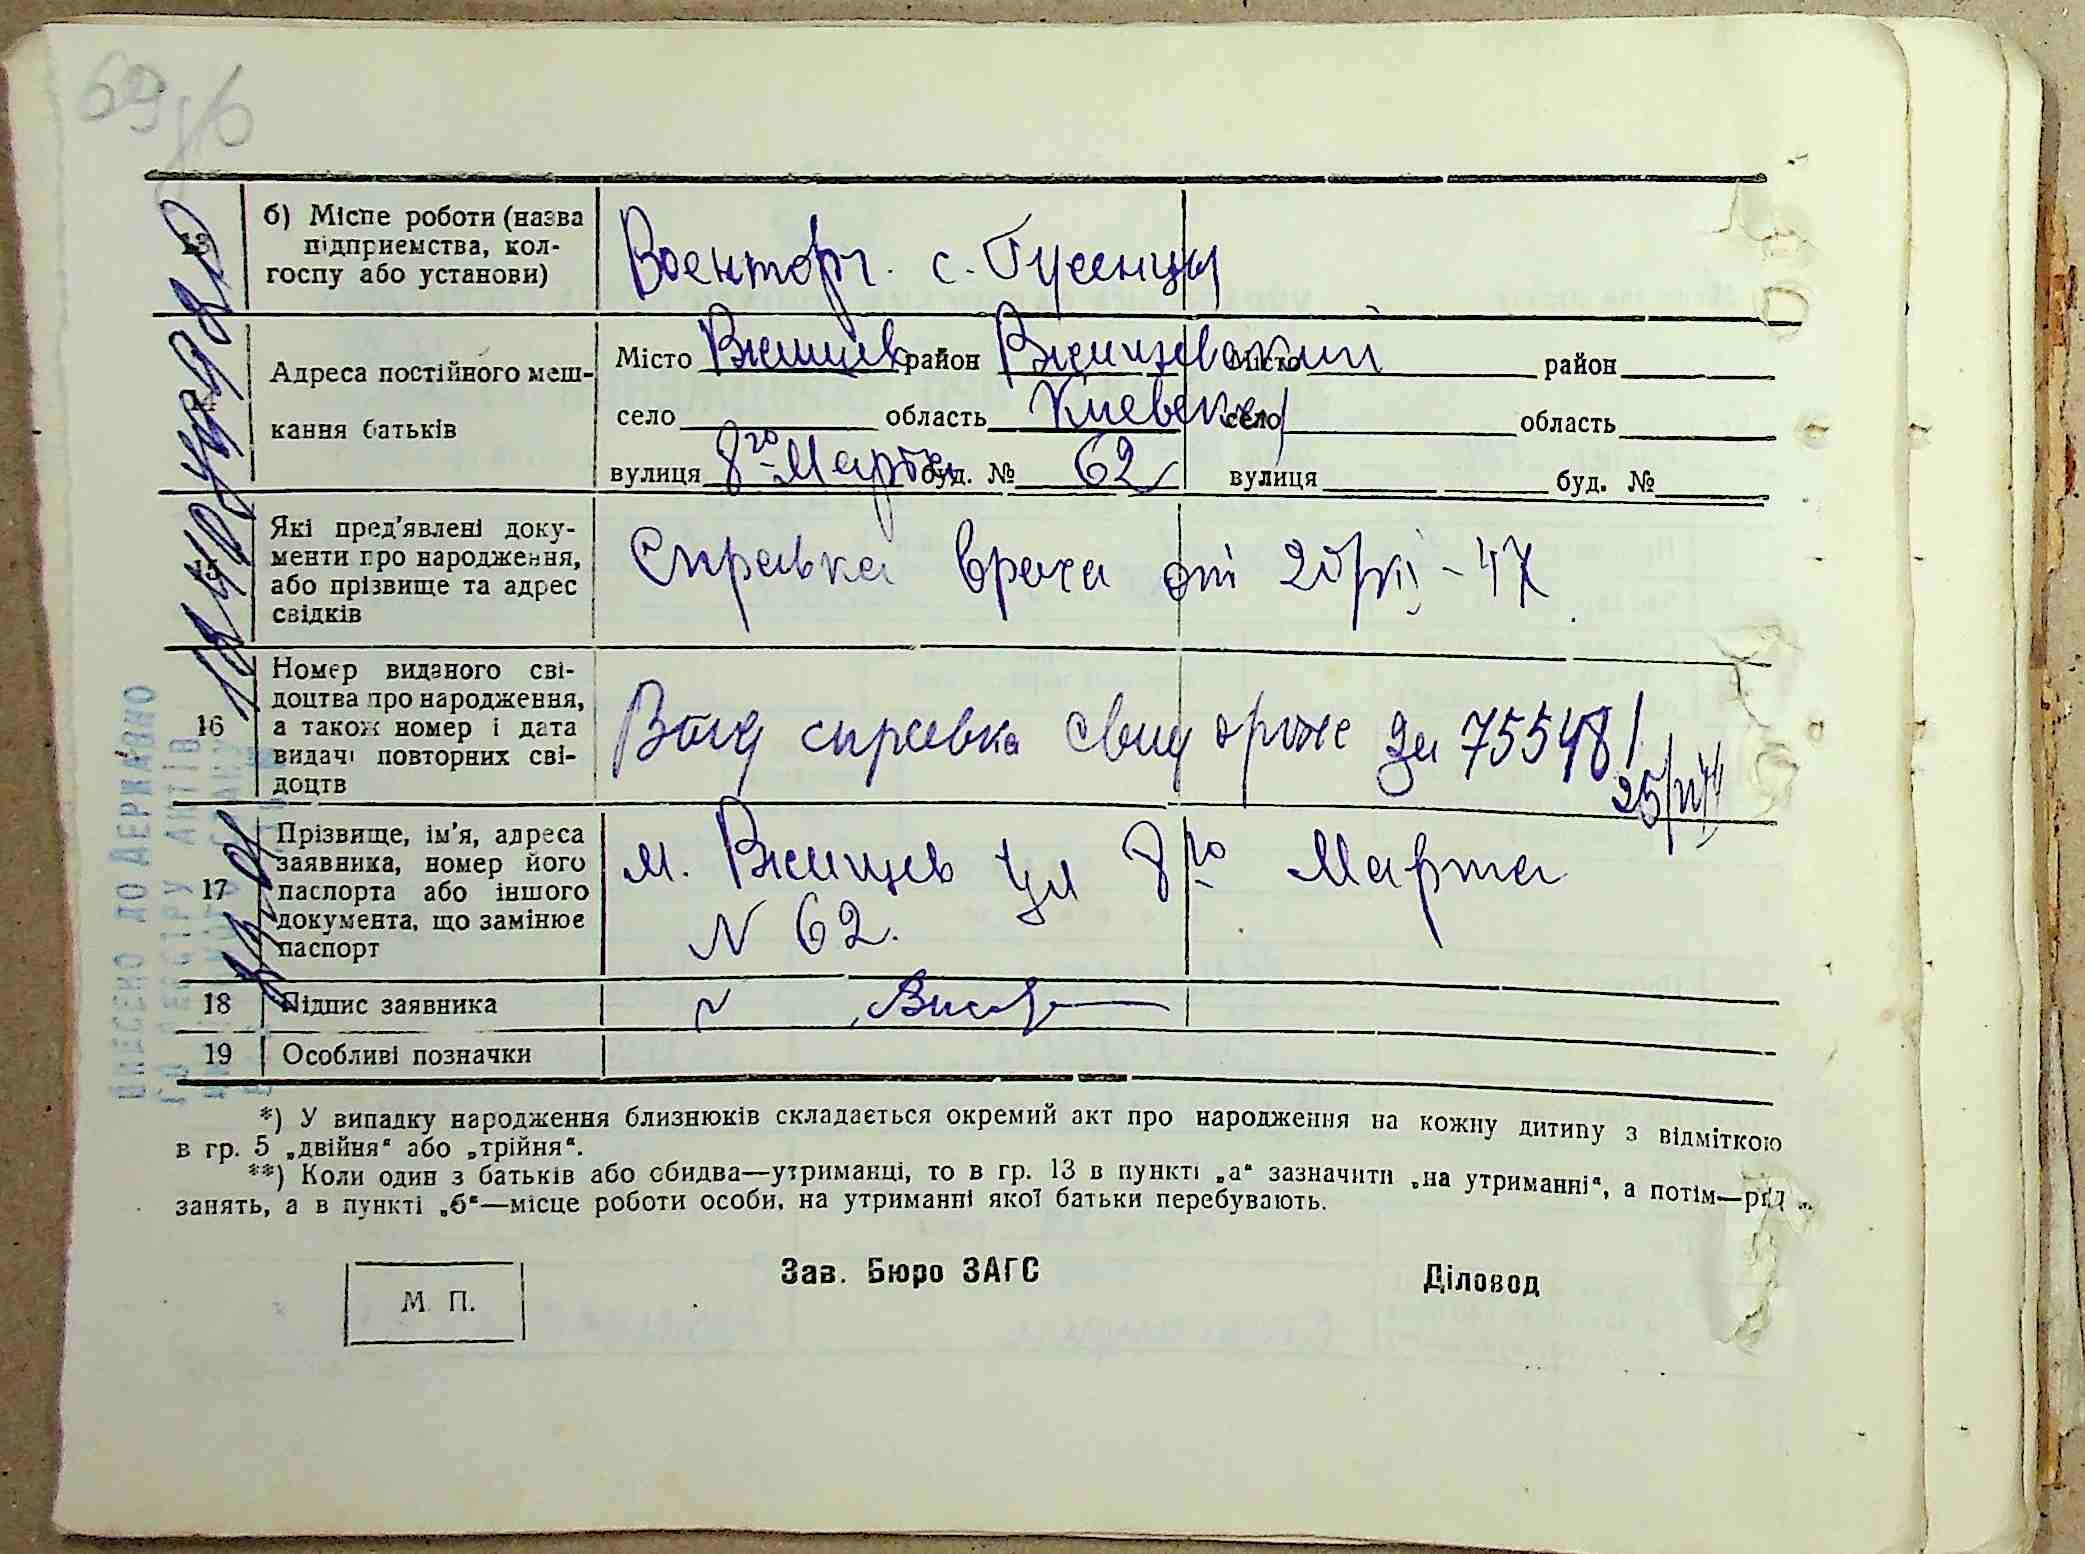 69
13 б) Місце роботи (назва
підприємства, кол-
госпу або установи)
Военторг. с. Гусенцы
Адреса постійного меш-
кання батьків
Місто Ржищев район Ржищевский Місто район
село область Киевская село область
вулиця 8го Марта буд. № 62 вулиця буд. №
15 Які пред'явлені доку-
менти про народження,
або прізвище та адрес
свідків
Справка врача от 25/VII-47
16 Номер виданого сві-
доцтва про народження,
а також номер і дата
видачі повторних сві-
доцтв
справка за 75548
17 Прізвище, ім'я, адреса
заявника, номер його
паспорта або іншого
документа, що замінює
паспорт
м. Ржищев ул 8го Марта
N 62.
18 Підпис заявника
19 Особливі позначки
ВНЕСЕНО ДО ДЕРЖАВНО
ГО РЕЄСТРУ АКТІВ
*) У випадку народження близнюків складається окремий акт про народження на кожну дитину з відміткою
в гр. 5 „двійня“ або „трійня“.
**) Коли один з батьків або обидва—утриманці, то в гр. 13 в пункті „а“ зазначити „на утриманні“, а потім—рід
занять, а в пункті „б“—місце роботи особи, на утриманні якої батьки перебувають.
М. П.
Зав. Бюро ЗАГС Діловод